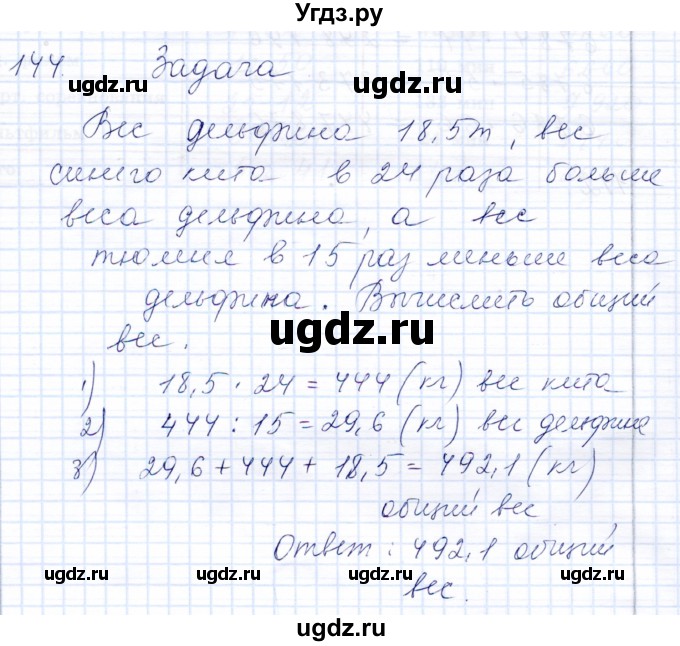 Угдз.ру
144. Задача
ugdz.ru
ugdz.ru
Вес дельфина 18,5т, вес
синего кита в 24 раза больше
веса дельфина, а вес
тюленя в 15 раз меньше веса
дельфина. Вычислить общий
вес.
ugdz.ru
1) 18,5 · 24 = 444 (кг) вес кита
2) 444 : 15 = 29,6 (кг) вес дельфина
3) 29,6 + 444 + 18,5 = 492,1 (кг)
общий вес
Ответ: 492,1 общий
вес.
ugdz.ru
ugdz.ru
ugdz.ru
ugdz.ru